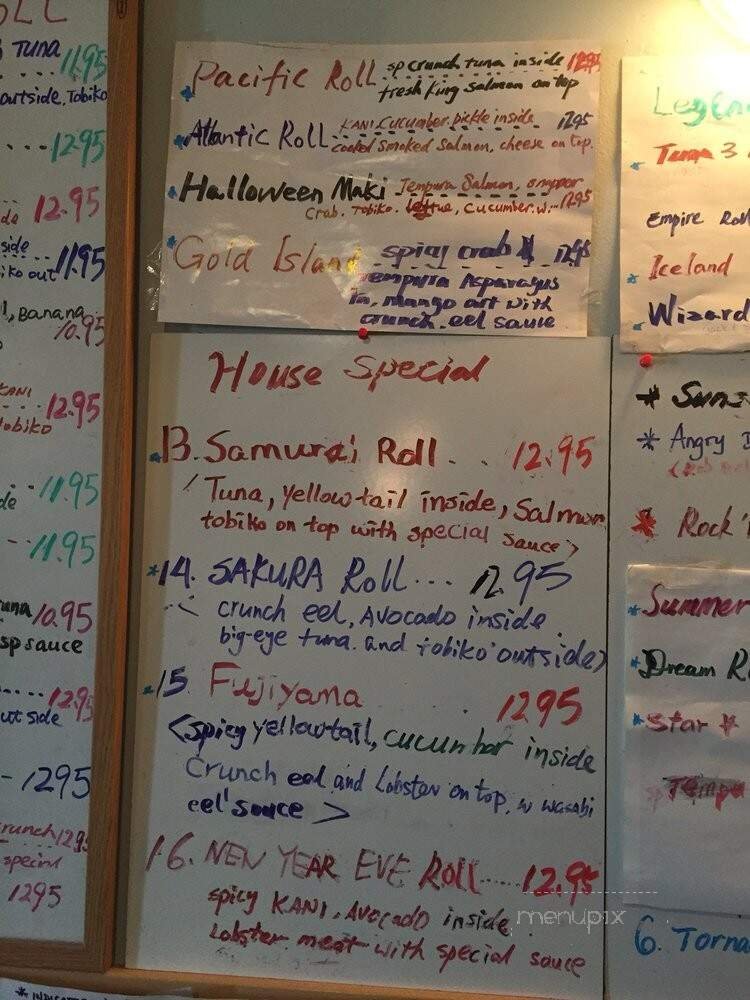 TUNA
11.95
outside, Tobiko
12.95
12.95
side
iko out 11.95
l, Banana
10.95
KANI
12.95
Tobiko
11.95
11.95
una 10.95
sp sauce
12.95
out side
1295
crunch 129
special
1295
Pacific Roll sp crunch tuna inside 1295
fresh king salmon on top
Atlantic Roll KANI. Cucumber. pickle inside 1295
cooked smoked salmon, cheese on top.
Halloween Maki Tempura Salmon,
crab. Tobiko. cucumber. w. 1295
Gold Island spicy crab 1295
Tempura Asparagus
In, mango out with
crunch. eel sauce
House Special
13. Samurai Roll . . 12.95
Tuna, yellowtail inside, Salmon
tobiko on top with special sauce>
*14. SAKURA Roll... 12.95
crunch eel, Avocado inside
big-eye tuna. and tobiko outside)
15. Fujiyama . 1295
<spicy yellowtail, cucumbar inside
Crunch eel and Lobster on top, w wasabi
eel sauce >
16. NEW YEAR EVE ROLL...... 12.95
spicy KANI, Avocado inside
Lobster meat with special sauce
menupix
Tuna 3
Empire Roll
Iceland
Wizard
* Angry
* Rock
Summer
Dream R
Star
Tempu
6. Torna